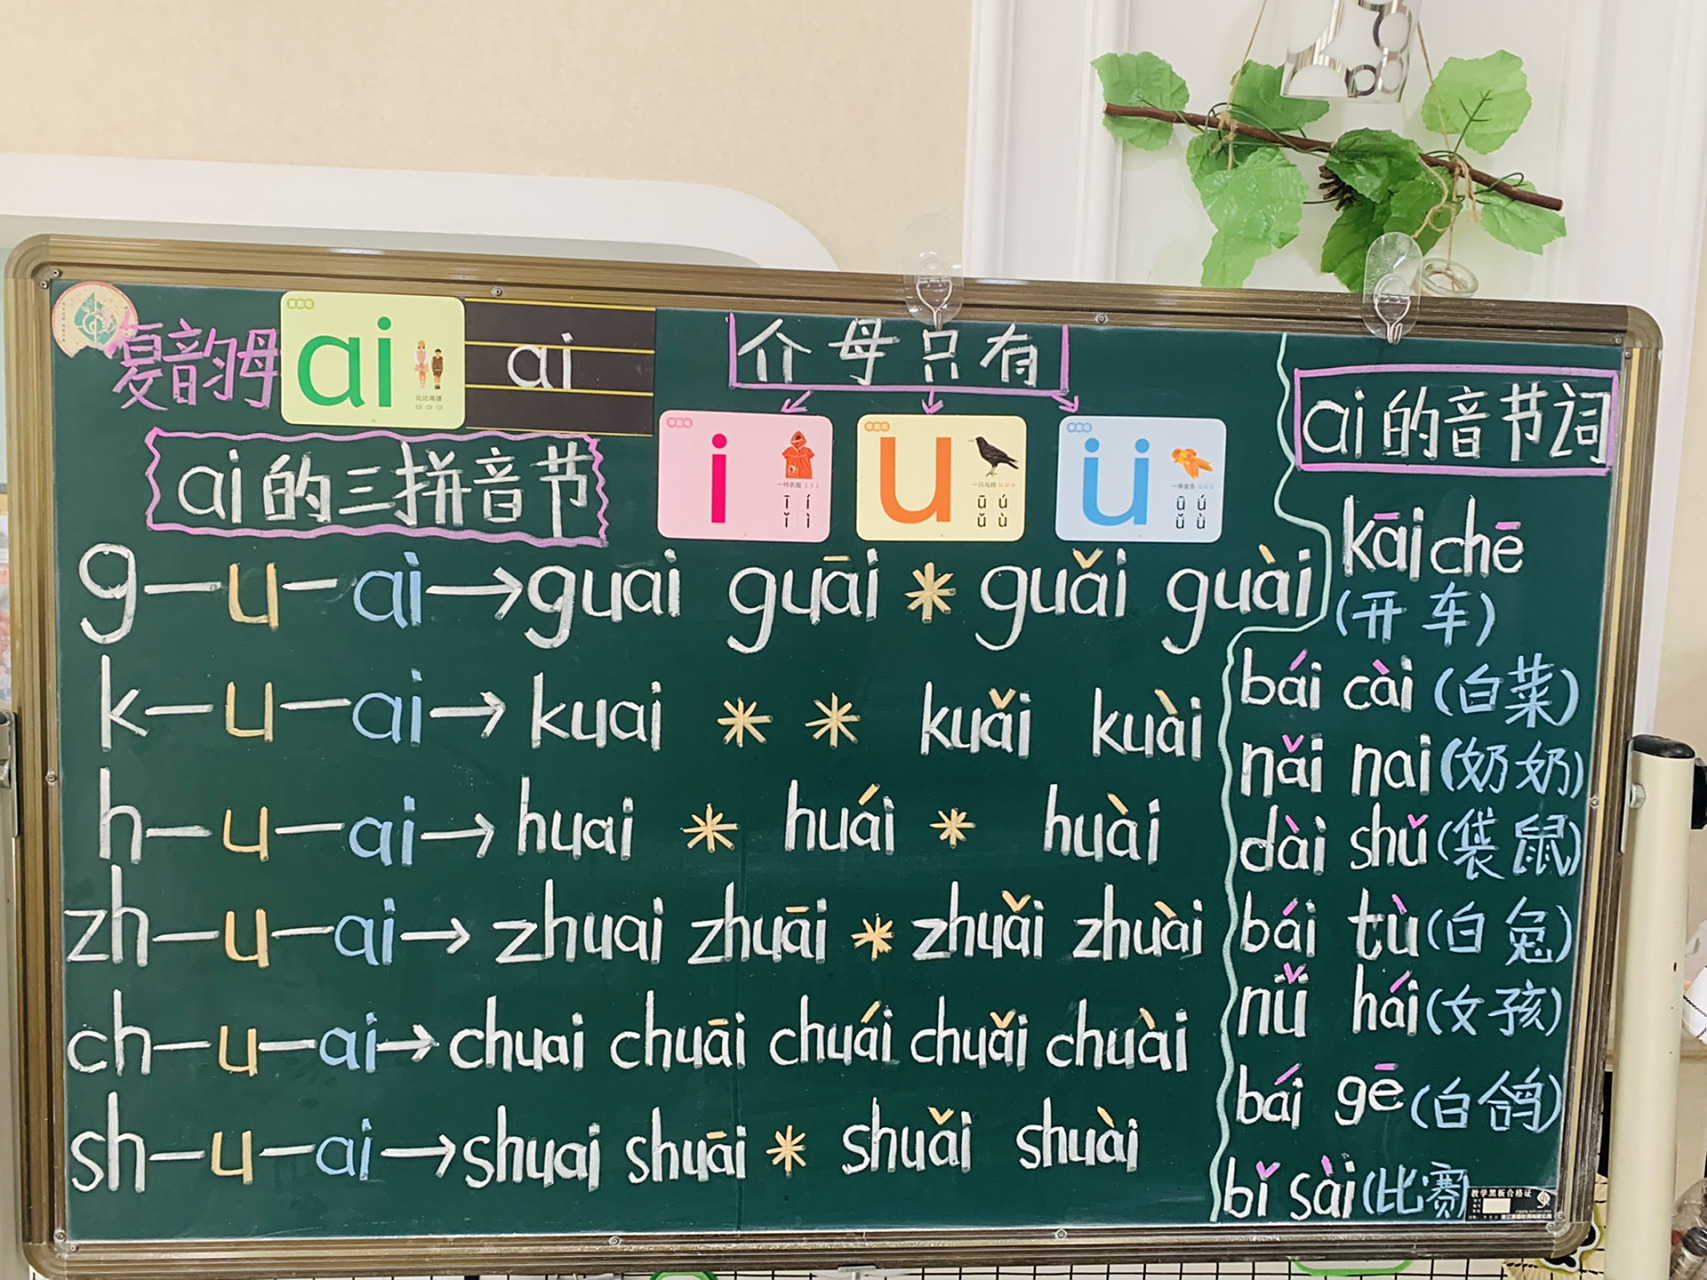 复韵母 ai ai
介母只有
i u ü
一件衣服
ī í ǐ ì
ū ú ǔ ù
ǖ ǘ ǚ ǜ
ai的三拼音节
g—u—ai→guai guāi * guǎi guài
k—u—ai→kuai * * kuǎi kuài
h—u—ai→huai * huái * huài
zh—u—ai→zhuai zhuāi * zhuǎi zhuài
ch—u—ai→chuai chuāi chuái chuǎi chuài
sh—u—ai→shuai shuāi * shuǎi shuài
ai的音节词
kāi chē
(开车)
bái cài (白菜)
nǎi nai (奶奶)
dài shǔ (袋鼠)
bái tù (白兔)
nǚ hái (女孩)
bái gē (白鸽)
bǐ sài (比赛)
教学黑板合格证